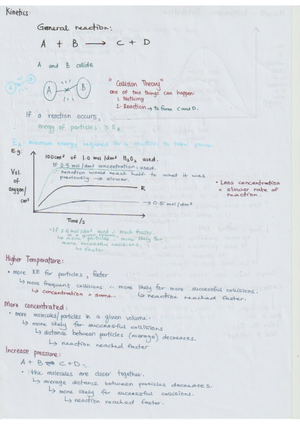 Kinetics:
General reaction:
A + B → C + D
A and B collide
A B
"Collision Theory"
one of two things can happen
1. Nothing
2. Reaction → to form C and D.
If a reaction occurs,
energy of particles ≥ EA
EA = Minimum energy required for a reaction to take place
E.g.
100cm³ of 1.0 mol/dm³ H₂O₂ used.
Vol of oxygen/cm³
reaction would react half to what it was
previously → slower.
R
0.5 mol/dm³
Time/s
• Less concentration
= slower rate of
reaction
more particles, more likely for
more successful collisions
faster
Higher Temperature:
• more KE for particles, faster
↳ more frequent collisions → more likely for more successful collisions.
↳ concentration = same.
↳ reaction reached faster.
More concentrated:
• more molecules/particles in a given volume.
↳ more likely for successful collisions
↳ distance between particles (average) decreases.
↳ reaction reached faster
Increase pressure:
A + B ⇌ C + D
• the molecules are closer together.
↳ average distance between particles decreases.
↳ more likely for successful collisions.
↳ reaction reached faster.